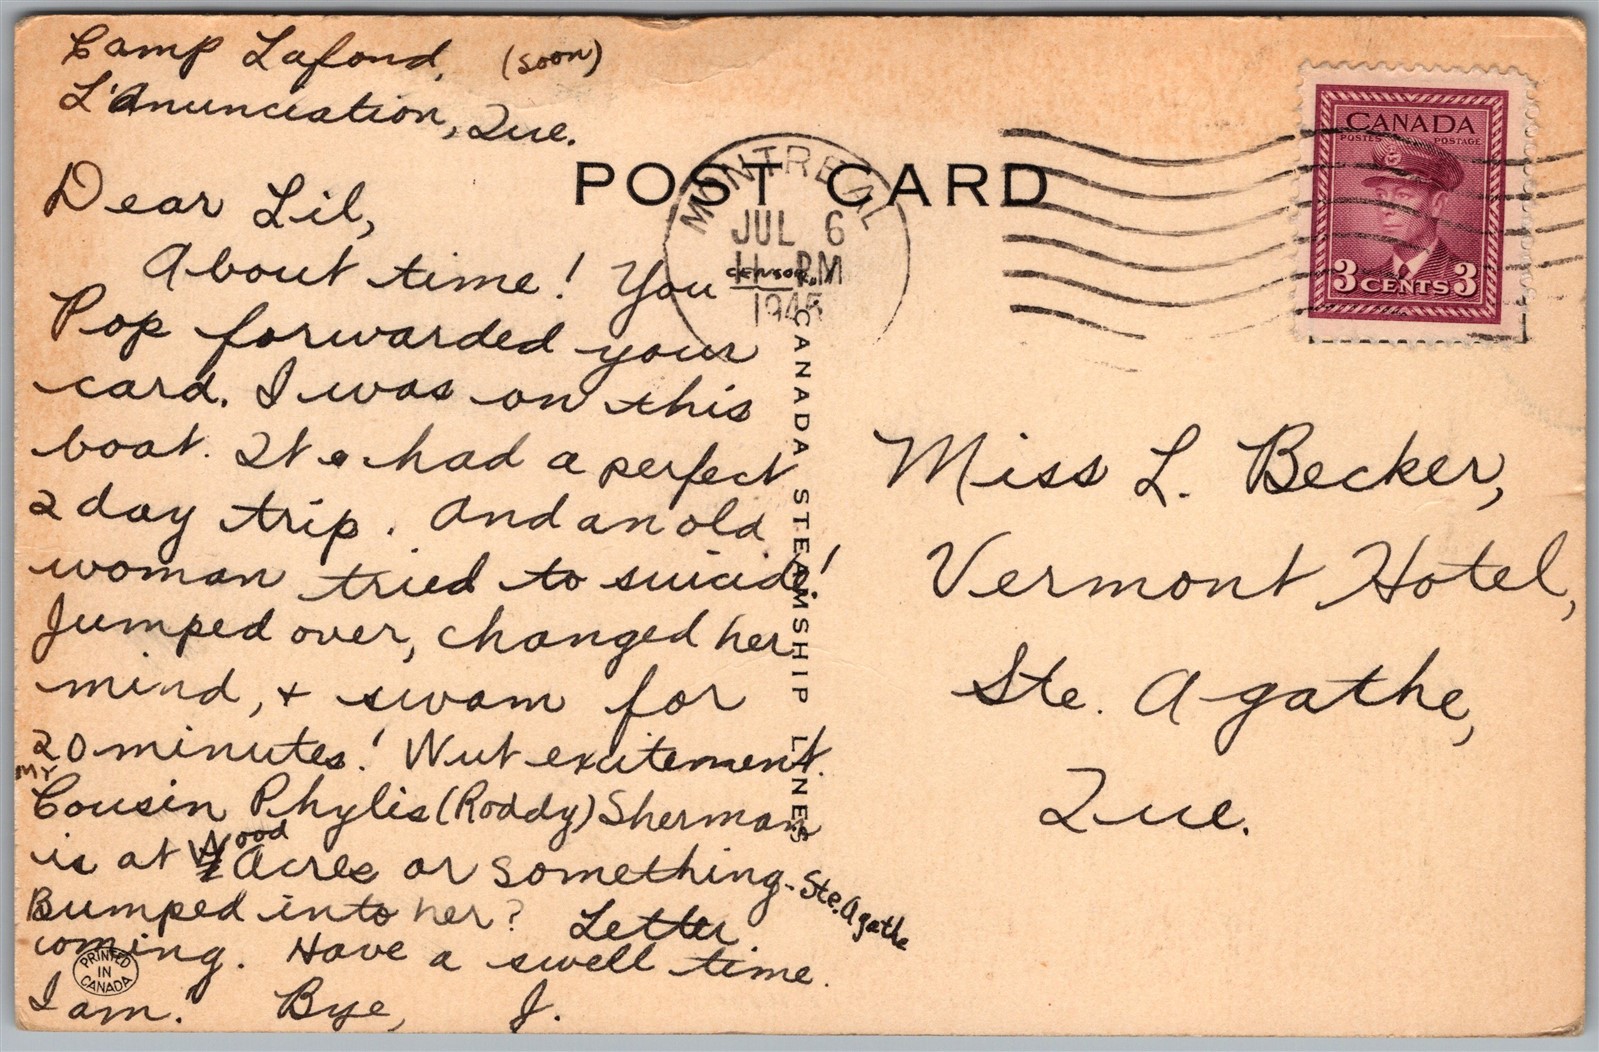 Camp Lafond, (soon)
L'Anunciation, Que.
Dear Lil,
About time! You censor.
Pop forwarded your
card. I was on this
boat. It had a perfect
2 day trip. And an old
woman tried to suicide!
Jumped over, changed her
mind, + swam for
20 minutes! Wut excitement.
MY
Cousin Phylis (Roddy) Sherman
is at Wood Acres or something - Ste. Agathe
Bumped into her? Letter
coming. Have a swell time.
I am. Bye, J.
PRINTED
IN
CANADA
POST CARD
MONTREAL
JUL 6
11 PM
1945
CANADA STEAMSHIP LINES
CANADA
POSTES POSTAGE
3 CENTS 3
Miss L. Becker,
Vermont Hotel,
Ste. Agathe,
Que.